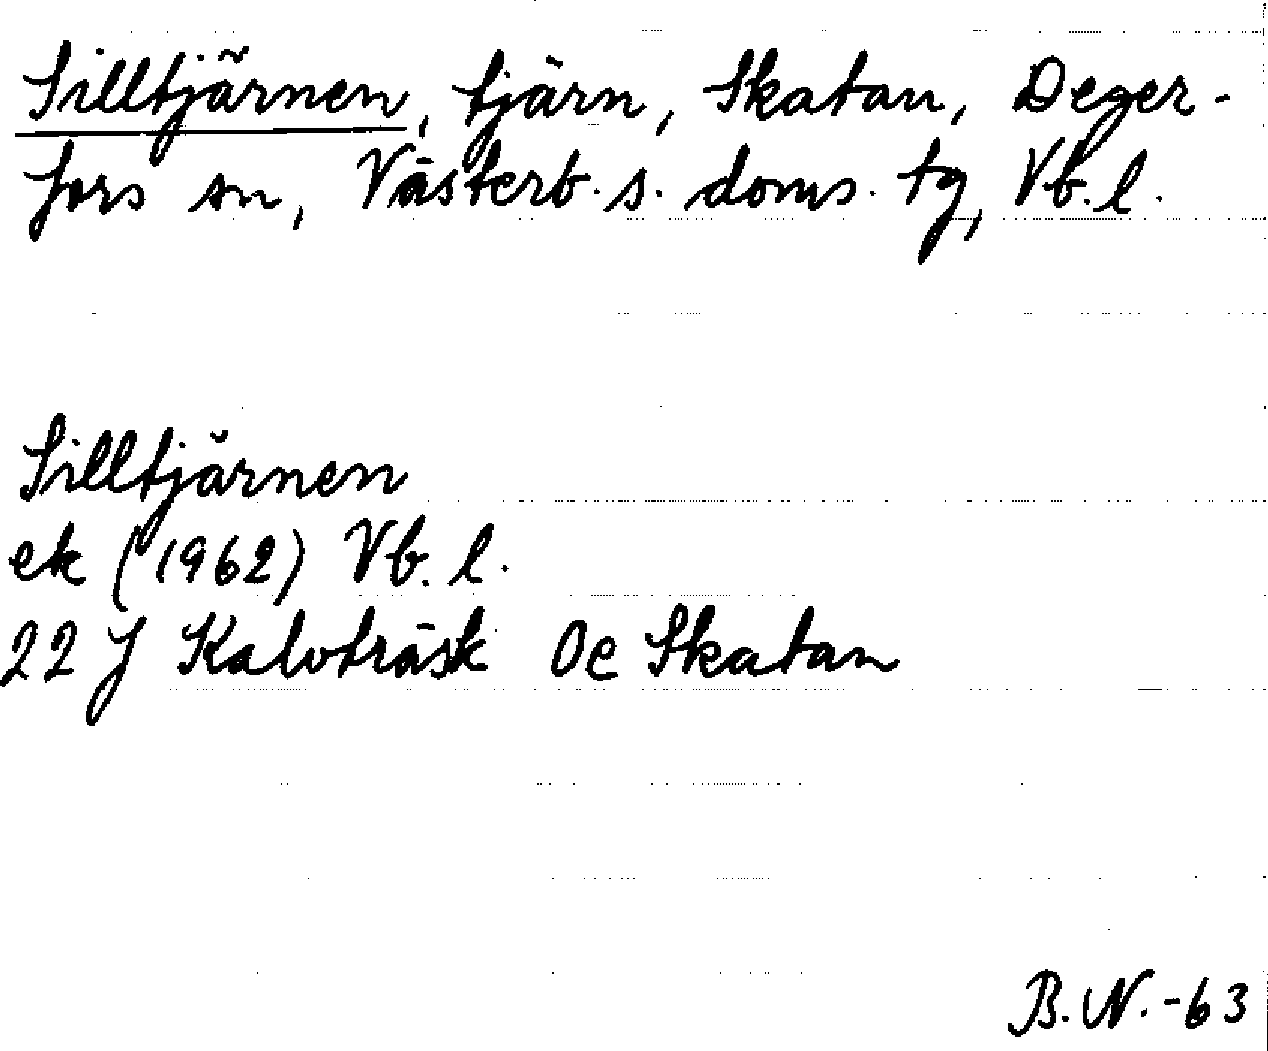 Silltjärnen, tjärn, Skatan, Deger-
fors sn, Västerb. s. doms. tg, Vb. l.
Silltjärnen
ek (1962) Vb. l.
22 J Kalvträsk Oe Skatan
B. N. -63